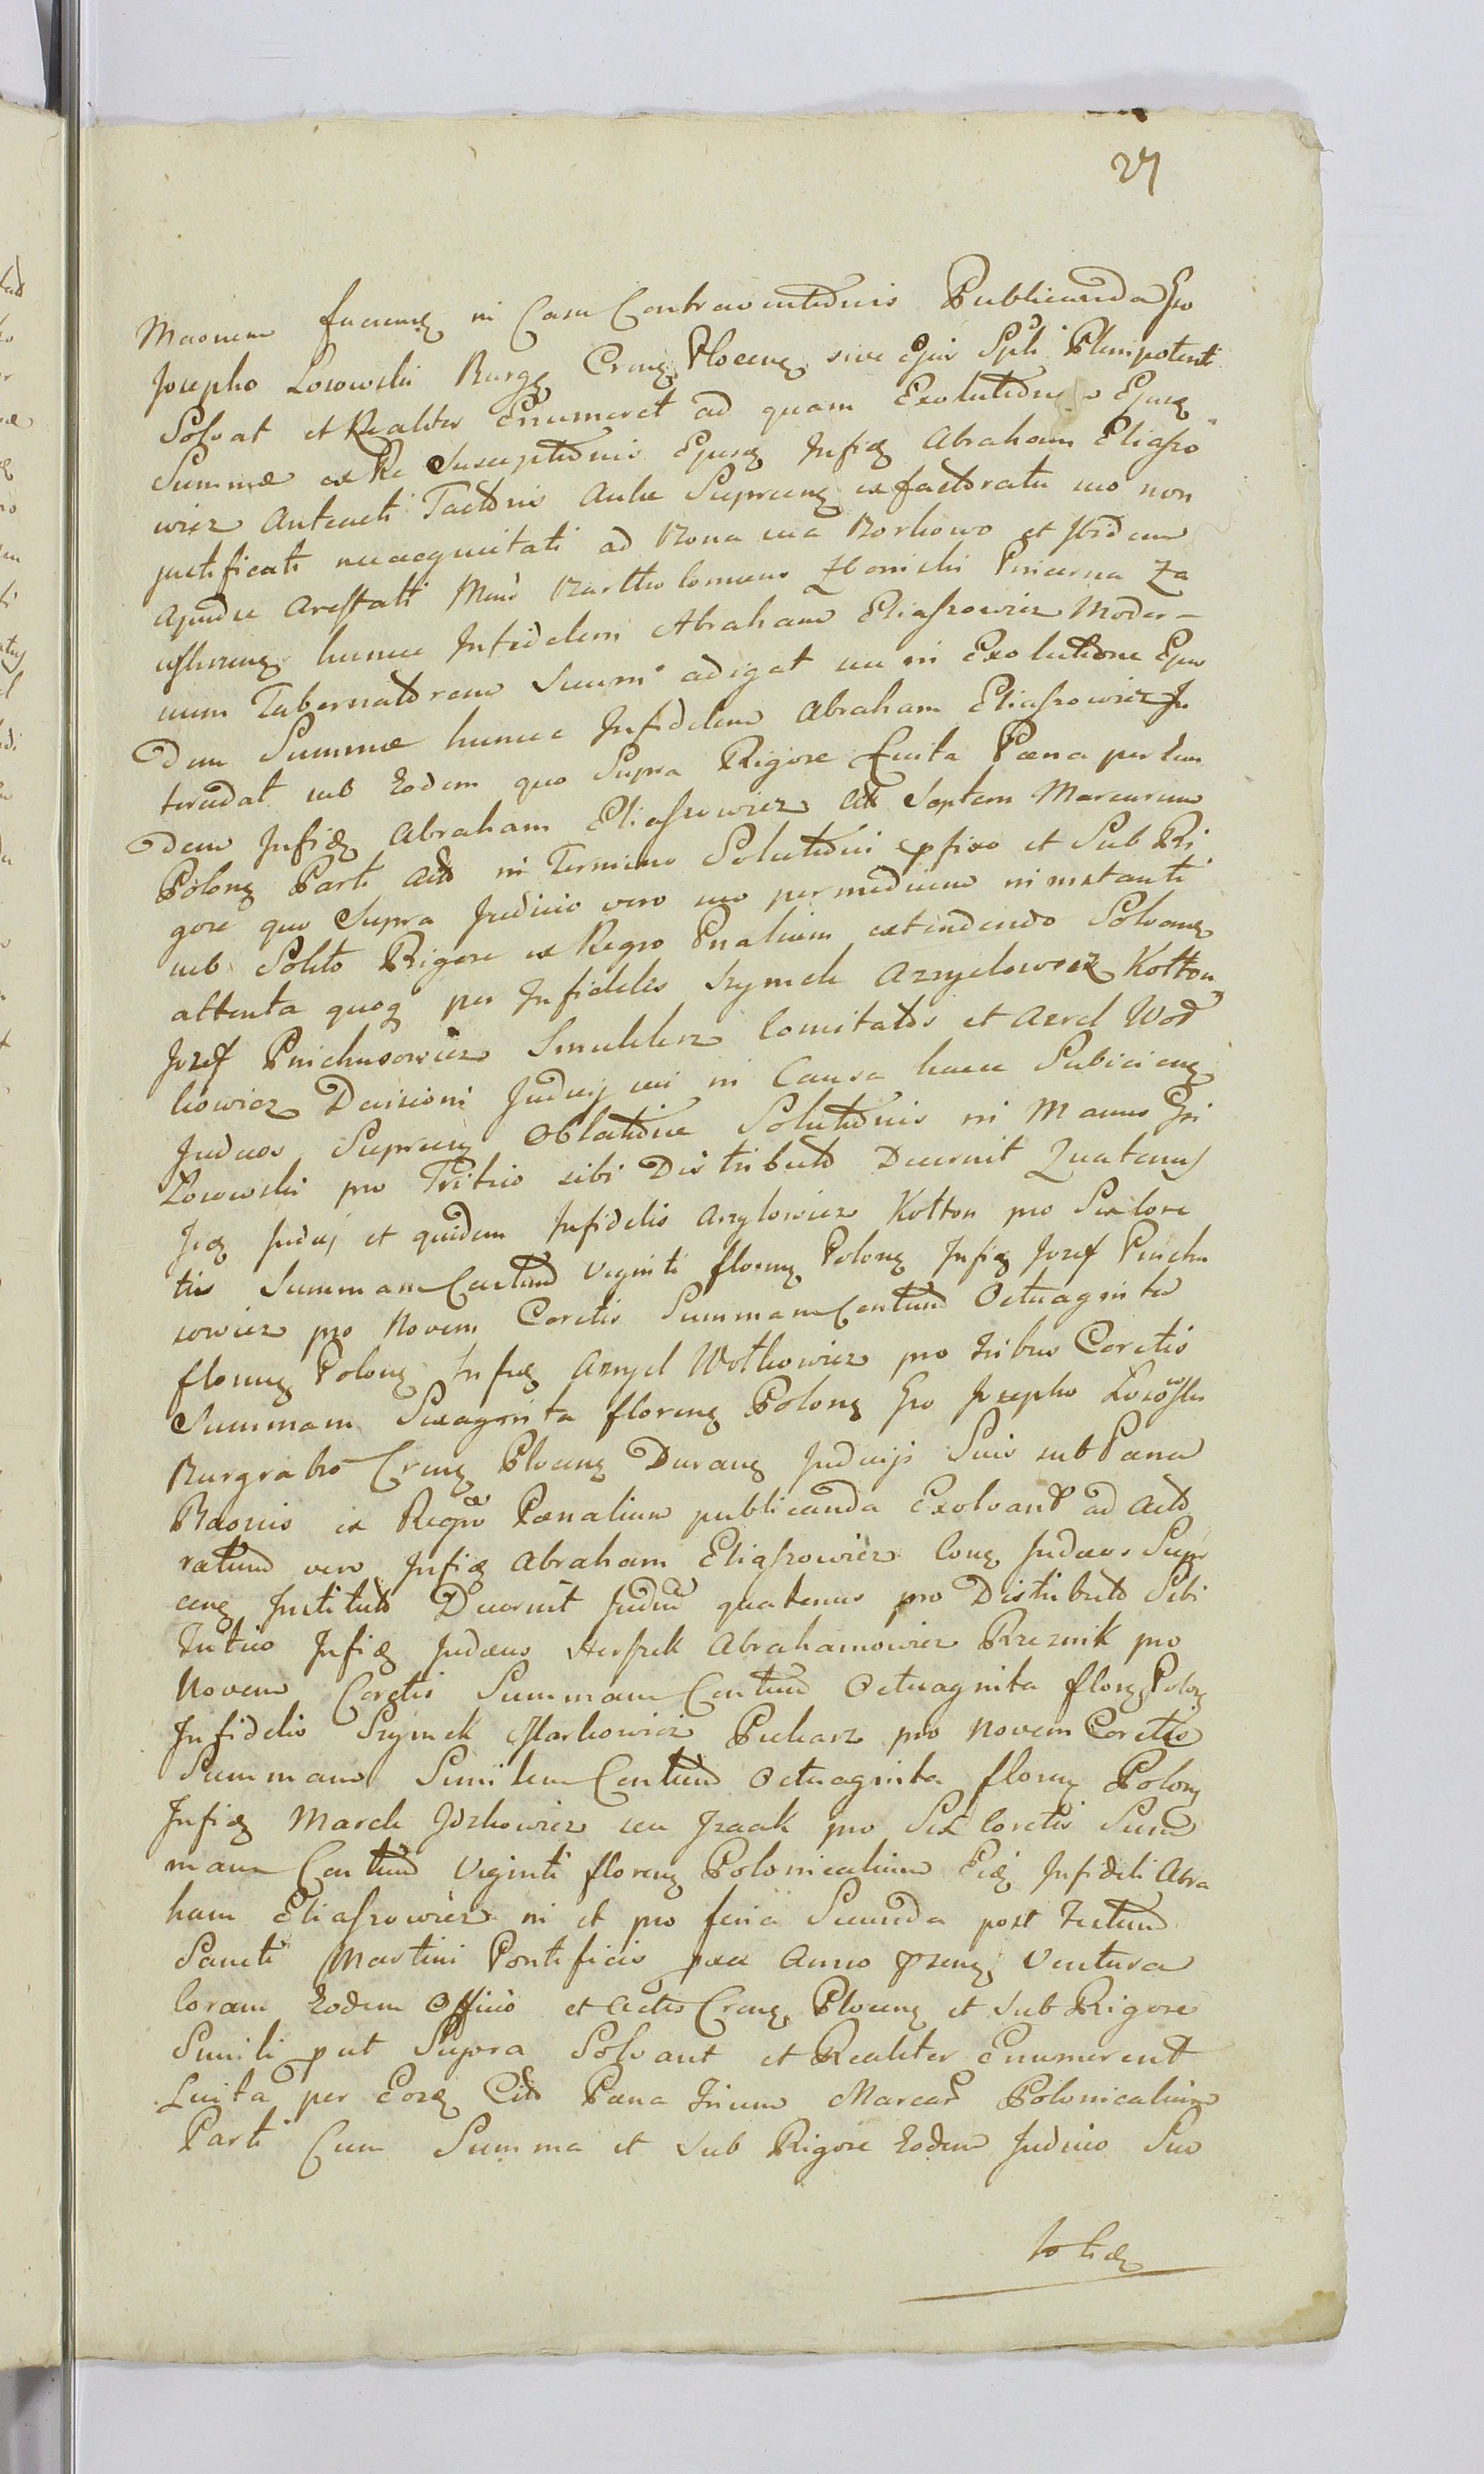 27
Maonem facieng in Casu Contraventionis Publicanda Gso
Josepho Łosowski Burgg Creng Ploceng sive Ejus Spli Plenipotenti
Solvat et Realiter Enumeret ad quam Exolutidne Ejusg
Summæ ex Re Susceptidnis Ejusg Infid Abraham Eliaszo
wicz Anteacti Factoris Aulæ Supreng ex factoratu suo non
justificati nec acquietati ad Bona sua Borkowo et Ibidem
Arestati Bartholomeus Zboinski Pincerna Za
hunce Infidelem Abraham Eliaszowicz Moder-
num Tabernatorem Suum adigat seu in Exolutione Ejus
dem Summæ hunce Infidelem Abraham Eliaszowicz In
trudat sub Eodem quo Supra Rigore Luita Pæna per Eun
dem Infid Abraham Eliaszowicz Septem Marcarum
Polong Parti in Termino Solutidni pfixo et Sub Ri
gore quo Supra Judicio vero suo permedium in instanti
sub Solito Rigore ex Regro Pnalium extendendo Solvang
attenta quoq per Infideles Szymek Azryelowicz Kotton
Jozef Pinchusowicz Smuklerz Comitatds et Azrel Wod
kowicz Decisioni Judicij sui in Causa hacce Subicieng
Judæos Supreng Oblatidne Solutidnis in Manus Gsi
Łosowski pro Tritico sibi Distributo Decrevit Quatenus
Iid Judæi et quidem Infidelis Azrylowicz Kotton pro Sex Core
tis Summam Centum Viginti floreng Polong Infid Jozef Pinchu
sowicz pro Novem Coretis Summam Centum Octuaginta
floreng Polong Infid Azryel Wolkowicz pro tribus Coretis
Summam Sexaginta floreng Polong Gso Josepho Łosowski
Burgrabio Creng Ploceng Durang Judicijs Suis sub Pæna
Baonis ex Regro Pænalium publicanda Exolvant ad Acto
ratum vero Infid Abraham Eliaszowicz Cong Judæos Supr
ceng Instituto Decrevit Judm quatenus pro Distributo Sibi
Tritico Infid Judæus Herszek Abrahamowicz Rzeznik pro
Novem Coretis Summam Centum Octuaginta floreng Polong
Infidelis Szymek Markowicz Piekarz pro Novem Coretis
Summam Similem Centum Octuaginta floreng Polong
Infid Marek Jozkowicz seu Izaak pro Sex Coretis Sum
mam Centum Viginti floreng Polonicalium Eid Infideli Abra
ham Eliaszowicz in et pro feria Secunda post Festum
Sancti Martini Pontificis Anno Pzeng Ventura
Coram Eodem Officio et Actis Creng Ploceng et sub Rigore
Simili put Supra Solvant et Realiter Enumerent
Luita per Eosd Citd Pæna Trium Marcar Polonicalium
Parti Cum Summa et sub Rigore Eodem Judicio Suo
totid